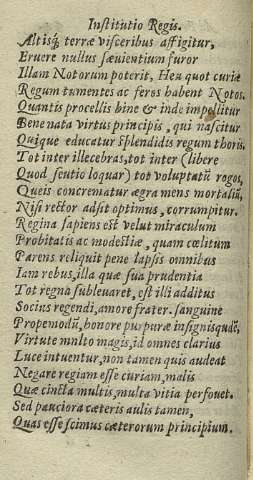 Institutio Regis.
Altisq; terræ visceribus affigitur,
Eruere nullus sæuientium furor
Illam Notorum poterit, Heu quot curiæ
Regum tumentes ac feras habent Notos.
Quantis procellis hinc & inde impellitur
Bene nata virtus principis, qui nascitur
Quique educatur splendidis regum thoris.
Tot inter illecebras, tot inter (libere
Quod sentio loquar) tot voluptatū rogos,
Queis concrematur ægra mens mortaliū,
Nisi rector adsit optimus, corrumpitur.
Regina sapiens est velut miraculum
Probitatis ac modestiæ, quam cœlitum
Parens reliquit pene lapsis omnibus
Iam rebus, illa quæ sua prudentia
Tot regna subleuaret, est illi additus
Socius regendi, amore frater, sanguine
Propemodū, honore purpuræ insignisquāe,
Virtute multo magis, id omnes clarius
Luce intuentur, non tamen quis audeat
Negare regiam esse curiam, malis
Quæ cincta multis, multa vitia perfouet.
Sed pauciora cæteris aulis tamen,
Quas esse scimus cæterorum principium.